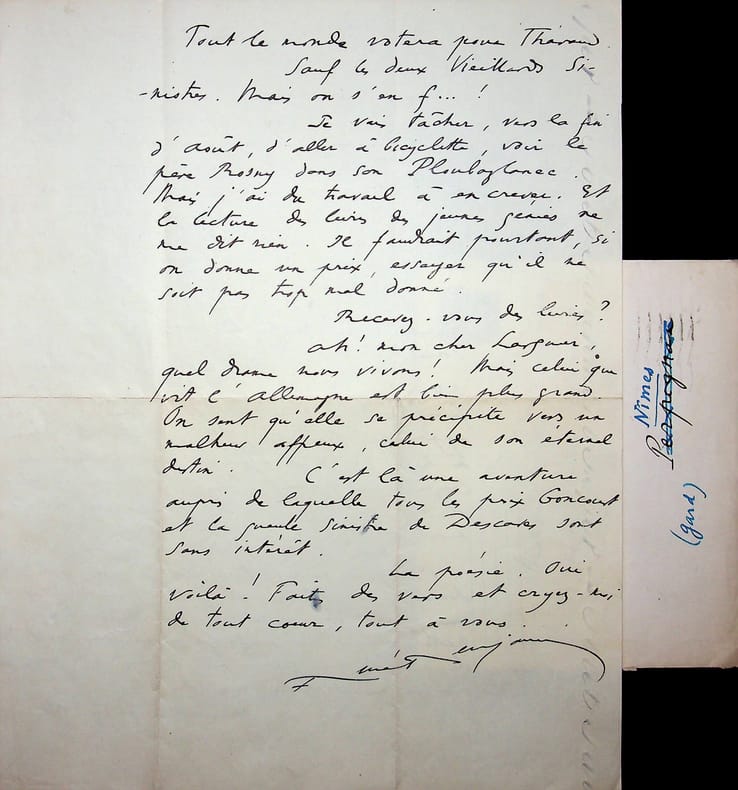 Tout le monde votera pour Tharaud.
Sauf les deux Vieillards Si-
-nistres. Mais on s'en f... !
Je vais tâcher, vers la fin
d'août, d'aller à bicyclette, voir le
père Rosny dans son Ploubazlanec.
Mais j'ai du travail à en crever. Et
la lecture des livres des jeunes génies ne
me dit rien. Il faudrait pourtant, si
on donne un prix, essayer qu'il ne
soit pas trop mal donné.
Recevez-vous des livres ?
Ah ! mon cher Larguier,
quel drame nous vivons ! Mais celui que
vit l'Allemagne est bien plus grand.
On sent qu'elle se précipite vers un
malheur affreux, celui de son éternel
destin. C'est là une aventure
auprès de laquelle tous les prix Goncourt
et la gueule sinistre de Descaves sont
sans intérêt.
La poésie. Oui
voilà ! Faites des vers et croyez-moi
de tout coeur, tout à vous.
Nîmes
Perpignan
(gard)